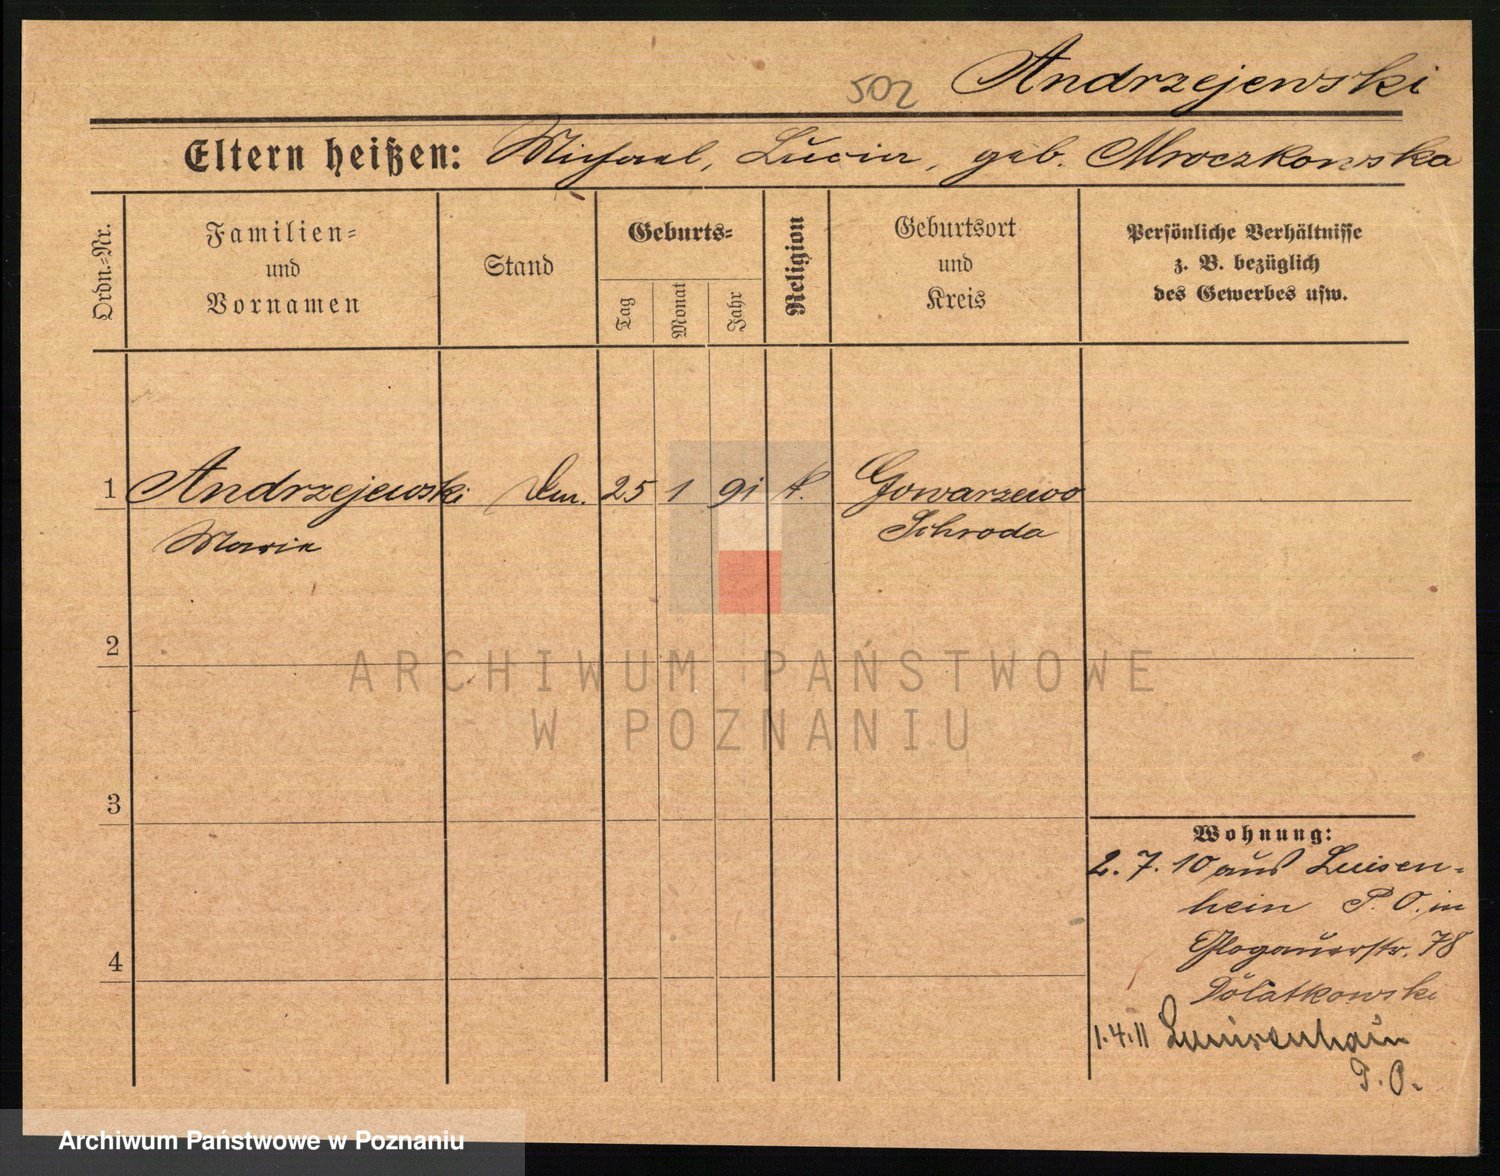 502 Andrzejewski
Eltern heißen: Michael, Lucia, geb. Mroczkowska
Ordn.-Nr.
Familien-
und
Vornamen
Stand
Geburts-
Tag
Monat
Jahr
Religion
Geburtsort
und
Kreis
Persönliche Verhältnisse
z. B. bezüglich
des Gewerbes usw.
1 Andrzejewski 25 1 91 k. Gowarzewo
Maria Schroda
2
ARCHIWUM PAŃSTWOWE
W POZNANIU
3
Wohnung:
2.7.10 aus Luisen-
hein P. O. in
Glogauerstr. 78
4
1.4.11 Luisenhain
P. O.
Archiwum Państwowe w Poznaniu